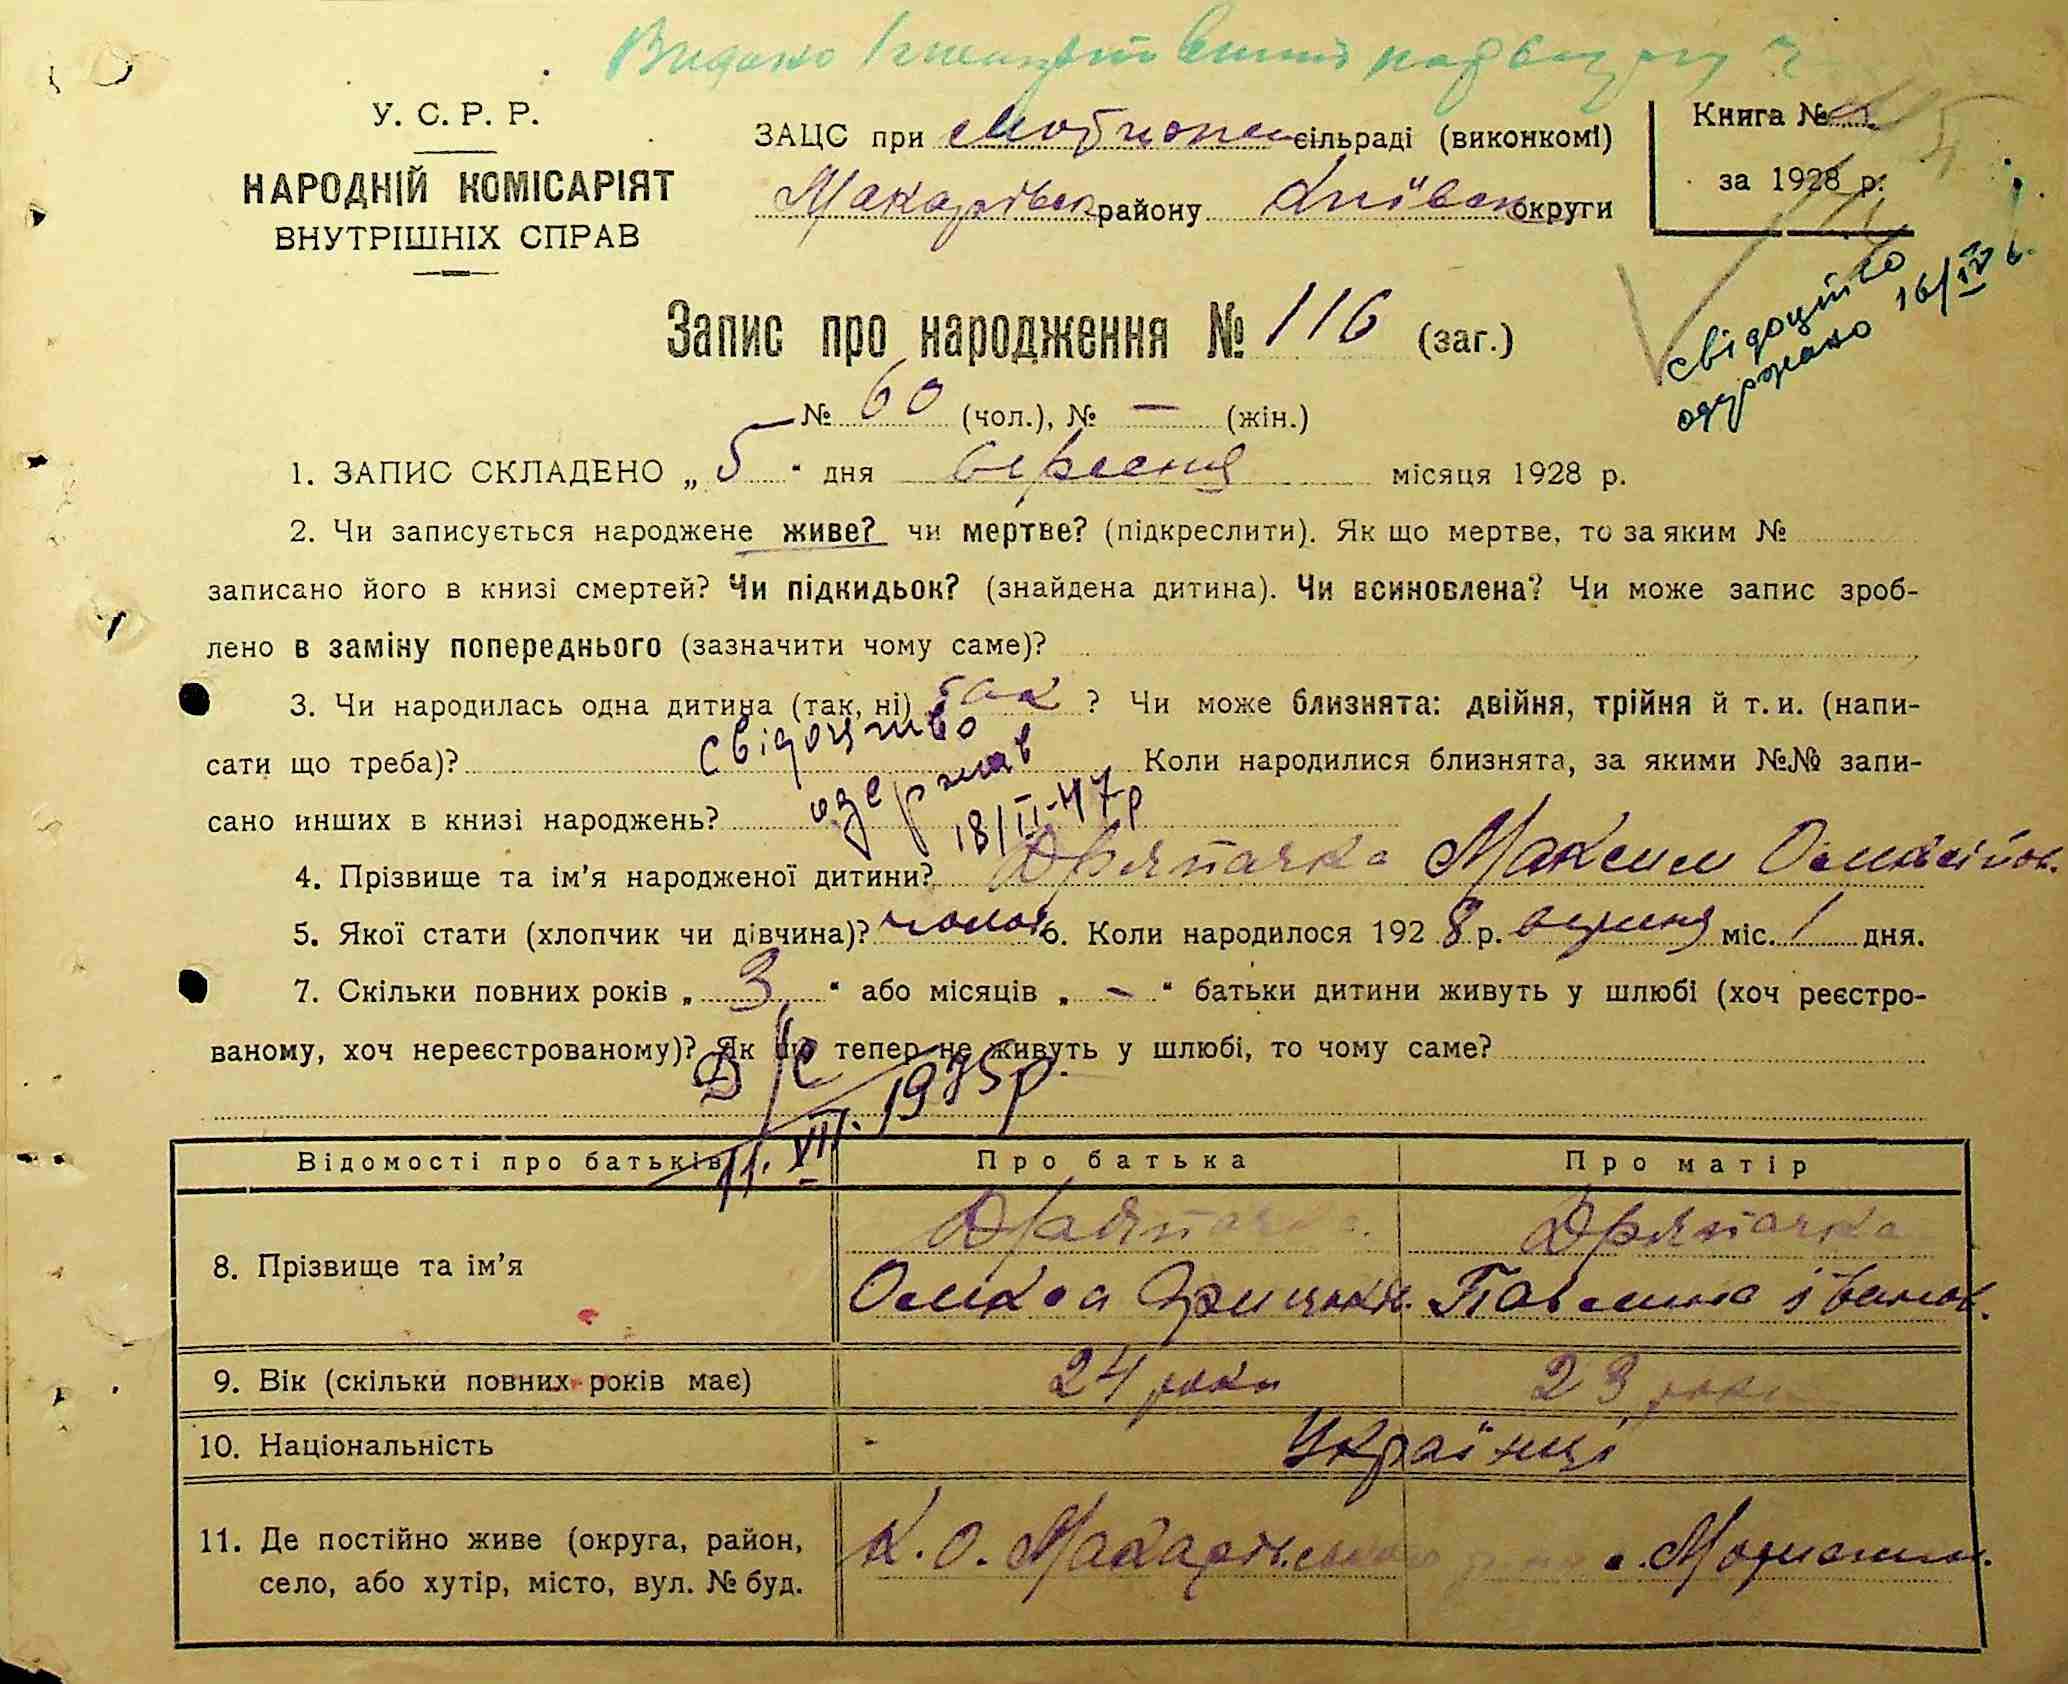 Видано
У. С. Р. Р.
НАРОДНІЙ КОМІСАРІЯТ
ВНУТРІШНІХ СПРАВ
ЗАЦС при сільраді (виконкомі)
Макарівськ району Київськ округи
Книга №
за 1928 р.
свідоцтво
одержано 16/IV
Запис про народження № 116 (заг.)
№ 60 (чол.), № — (жін.)
1. ЗАПИС СКЛАДЕНО „ 5 “ дня вересня місяця 1928 р.
2. Чи записується народжене живе? чи мертве? (підкреслити). Як що мертве, то за яким №
записано його в книзі смертей? Чи підкидьок? (знайдена дитина). Чи всиновлена? Чи може запис зроб-
лено в заміну попереднього (зазначити чому саме)?
3. Чи народилась одна дитина (так, ні) так ? Чи може близнята: двійня, трійня й т. и. (напи-
сати що треба)? Коли народилися близнята, за якими №№ запи-
сано инших в книзі народжень?
свідоцтво
одержав
18/II-47р
4. Прізвище та ім’я народженої дитини? Дряпачка Максим
5. Якої стати (хлопчик чи дівчина)? чолов 6. Коли народилося 1928 р. вересня міс. 1 дня.
7. Скільки повних років „ 3 “ або місяців „ – “ батьки дитини живуть у шлюбі (хоч реєстро-
ваному, хоч нереєстрованому)? Як що тепер не живуть у шлюбі, то чому саме?
11. VII. 1975р.
Відомості про батьків Про батька Про матір
8. Прізвище та ім’я Дряпачка Дряпачка
Павлина Іванов.
9. Вік (скільки повних років має) 24 роки 23 роки
10. Національність Українці
11. Де постійно живе (округа, район,
село, або хутір, місто, вул. № буд.
К. О. Макарівського с.